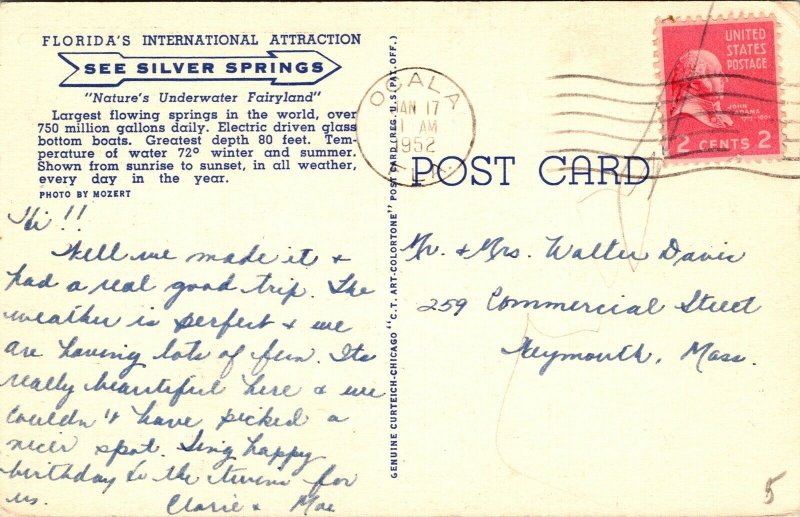 FLORIDA'S INTERNATIONAL ATTRACTION
SEE SILVER SPRINGS
"Nature's Underwater Fairyland"
Largest flowing springs in the world, over
750 million gallons daily. Electric driven glass
bottom boats. Greatest depth 80 feet. Tem-
perature of water 72º winter and summer.
Shown from sunrise to sunset, in all weather,
every day in the year.
PHOTO BY MOZERT
Hi!!
Well we made it &
had a real good trip. The
weather is perfect & we
are having lots of fun. Its
really beautiful here & we
couldn't have picked a
nicer spot. Sing happy
birthday to the twins for
us.
Clarie & Mae
GENUINE CURTEICH-CHICAGO "C.T. ART-COLORTONE" POST CARD (REG. U.S. PAT. OFF.)
OCALA
JAN 17
1 AM
1952
UNITED
STATES
POSTAGE
JOHN
ADAMS
2 CENTS 2
POST CARD
Mr. & Mrs. Walter Davis
259 Commercial Street
Weymouth, Mass.
5